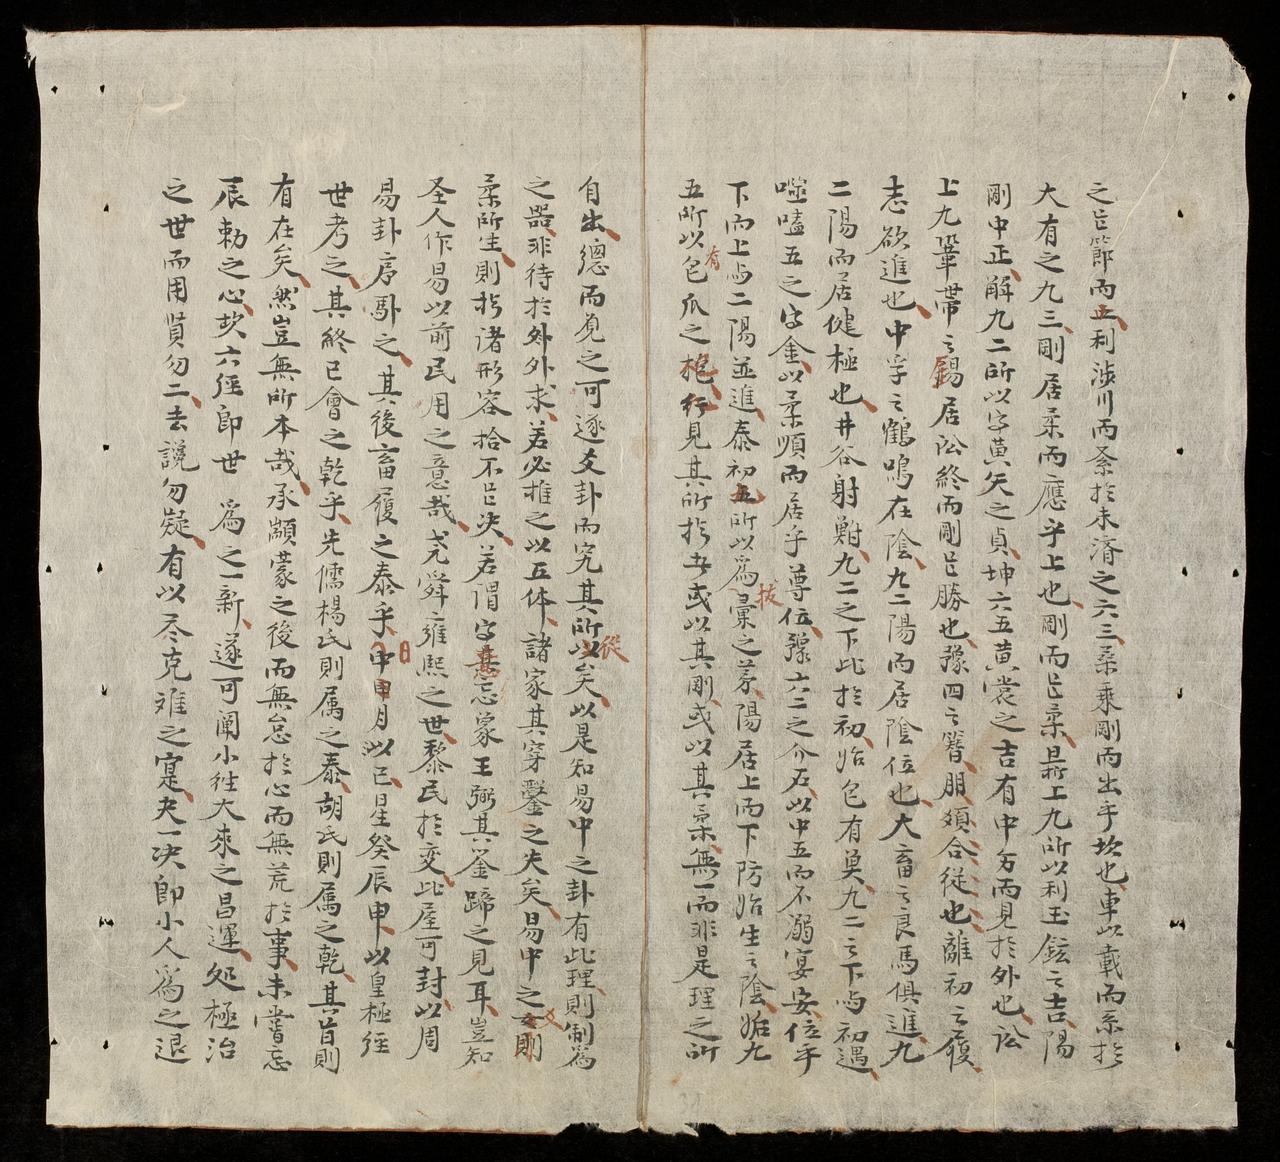 之吉節而止利涉川而系於未濟之六三柔乘剛而出乎坎也車以載而系於
大有之九三剛居柔而應乎上也剛而吉柔鼎上九所以利玉鉉之吉陽
剛中正解九二所以字黃矢之貞坤六五黃裳之吉有中方而見於外也訟
上九鞶帶之錫居訟終而剛吉勝也豫四之簪朋頻合從也離初之履
志欲進也中孚之鶴鳴在陰九二陽而居陰位也大畜之艮馬俱進九
二陽而居健極也井谷射鮒九二之下比於初姤包有魚九二之下与初遇
噬嗑五之字金以柔順而居乎尊位豫六二之介石以中五而不溺宴安位乎
下而上与二陽並進泰初五所以為拔彙之茅陽居上而下防始生之陰姤九
五所以包有瓜之杞行見其所指者或以其剛或以其柔無一而非是理之所
自出總而覓之可逐爻卦而究其所以從矣以是知易中之卦有此理則制為
之器非待於外外求若必推之以五体諸家其穿鑿之失矣易中之爻則
柔所生則指諸形容拾不吉决若谓字甚忘家王弼其筌蹄之見耳豈知
圣人作易以前民用之意哉堯舜雍熙之世黎民於变比屋可封以周
易卦序馭之其後畜履之泰乎日中申月以巳星癸辰申以皇極徑
世考之其終已會之乾乎先儒楊氏則属之泰胡氏則属之乾其旨則
有在矣然豈無所本哉承顓蒙之後而無怠於心而無荒於事未嘗忘
辰勅之心故六徑郎世為之一新遂可闡小徃大來之昌運处極治
之世而用賢勿二去說勿疑有以尽克难之寔夫一决郎小人為之退